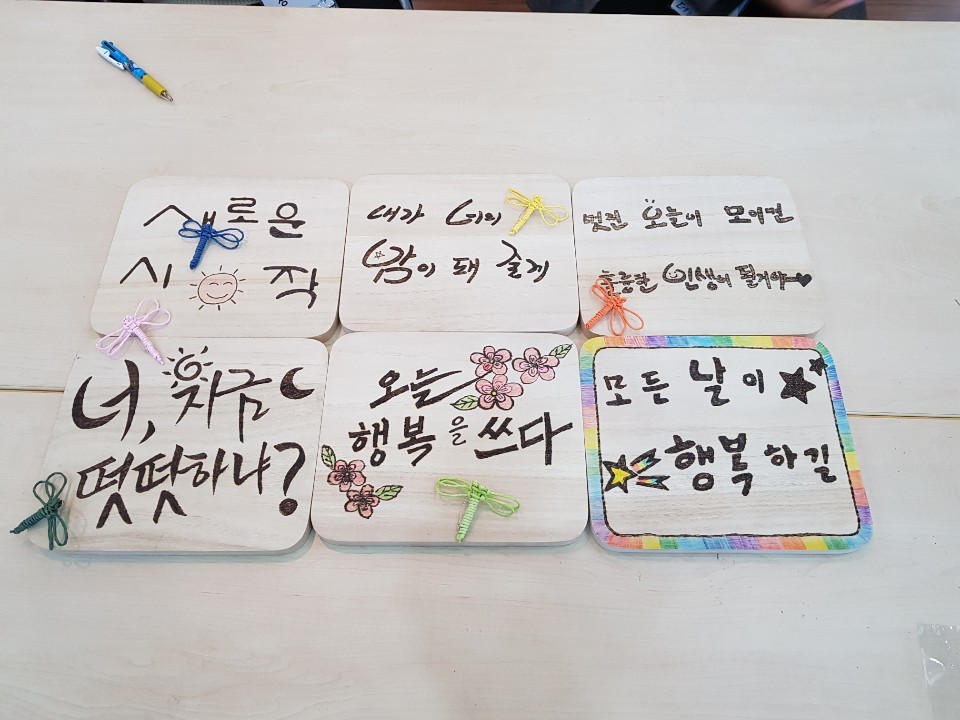 새로운
시작
내가 너의
밤이 돼 줄게
멋진 오늘이 모이면
훌륭한 인생이 될거야
너, 지금
떳떳하냐?
오늘
행복을 쓰다
모든 날이
행복하길